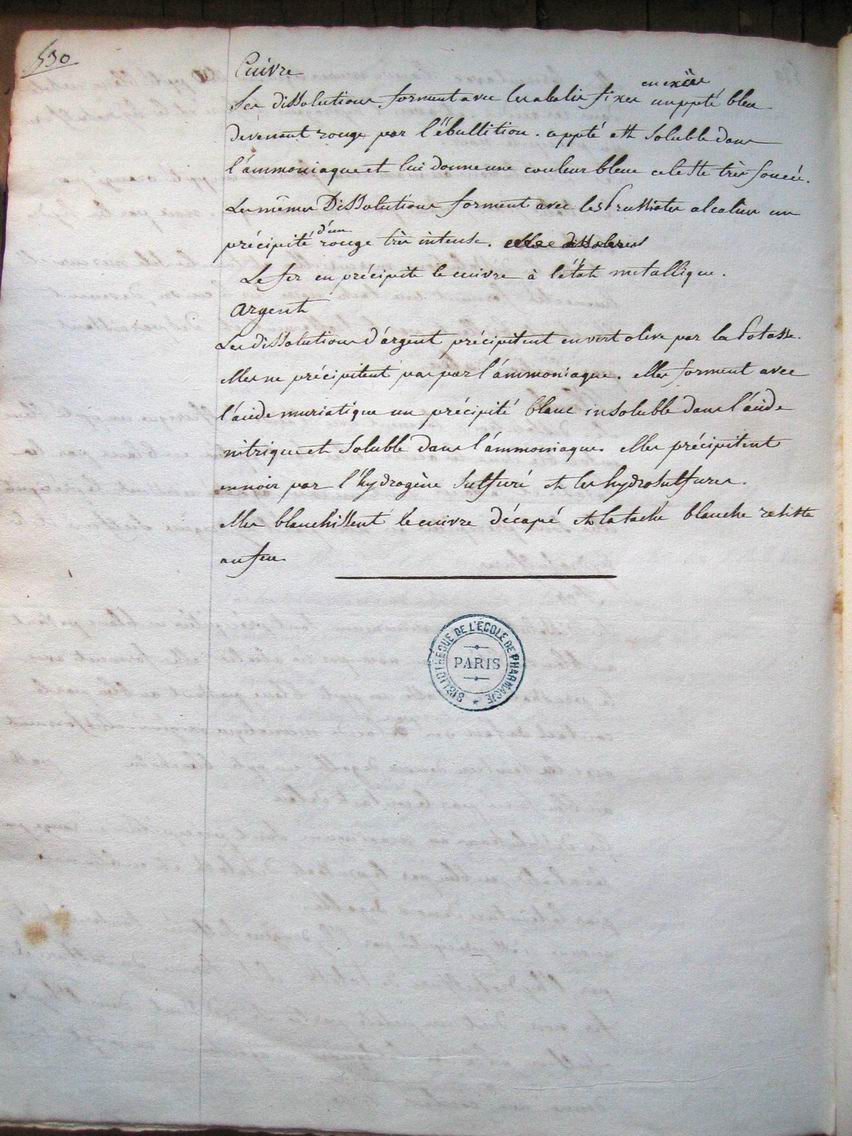 530
Cuivre
Ses dissolutions forment avec les alcalis fixes en excès un ppté bleu
devenant rouge par l'ëbullition. ce ppté est soluble dans
l'ammoniaque et lui donne une couleur bleue celeste très foncée.
Les mêmes Dissolutions forment avec les Prussiates alcalins un
précipité d'un rouge très intense.
Le fer en précipite le cuivre à l'état metallique.
Argent
Les dissolutions d'argent précipitent en vert olive par la Potasse.
elles ne précipitent pas par l'ammoniaque. elles forment avec
l'acide muriatique un précipité blanc insoluble dans l'acide
nitrique et soluble dans l'ammoniaque. elles précipitent
en noir par l'hydrogène sulfuré et les hydrosulfures.
elles blanchissent le cuivre décapé et la tache blanche resiste
au feu.
BIBLIOTHÈQUE DE L'ÉCOLE DE PHARMACIE
PARIS